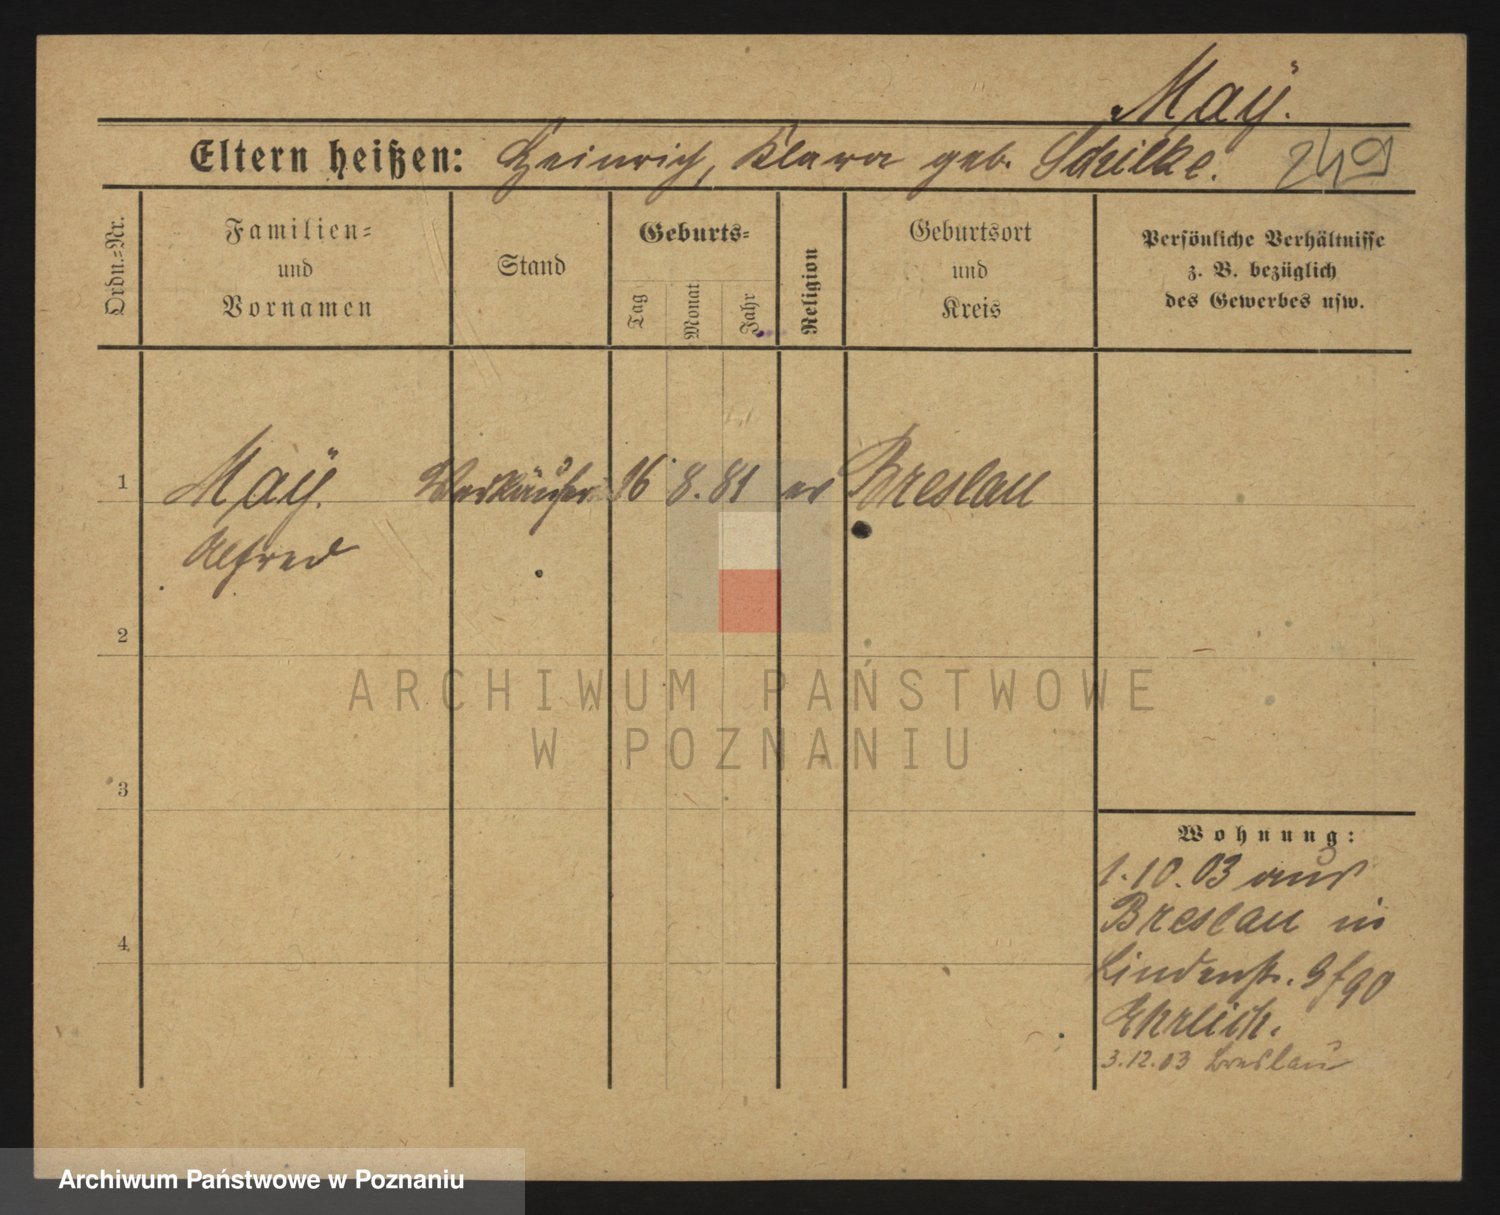 Maÿ.
Eltern heißen: Heinrich, Klara geb. Schilke.
Ordn.=Nr.
Familien=
und
Vornamen
Stand
Geburts=
Tag
Monat
Jahr
Religion
Geburtsort
und
Kreis
Persönliche Verhältnisse
z. B. bezüglich
des Gewerbes usw.
1 Maÿ. Verkäufer 16 8. 81 ev Breslau
Alfred
2
3
4
Wohnung:
1.10.03 aus
Breslau in
Lindenstr. 9 f
Ehrlich.
3.12.03 Breslau
ARCHIWUM PAŃSTWOWE
W POZNANIU
Archiwum Państwowe w Poznaniu